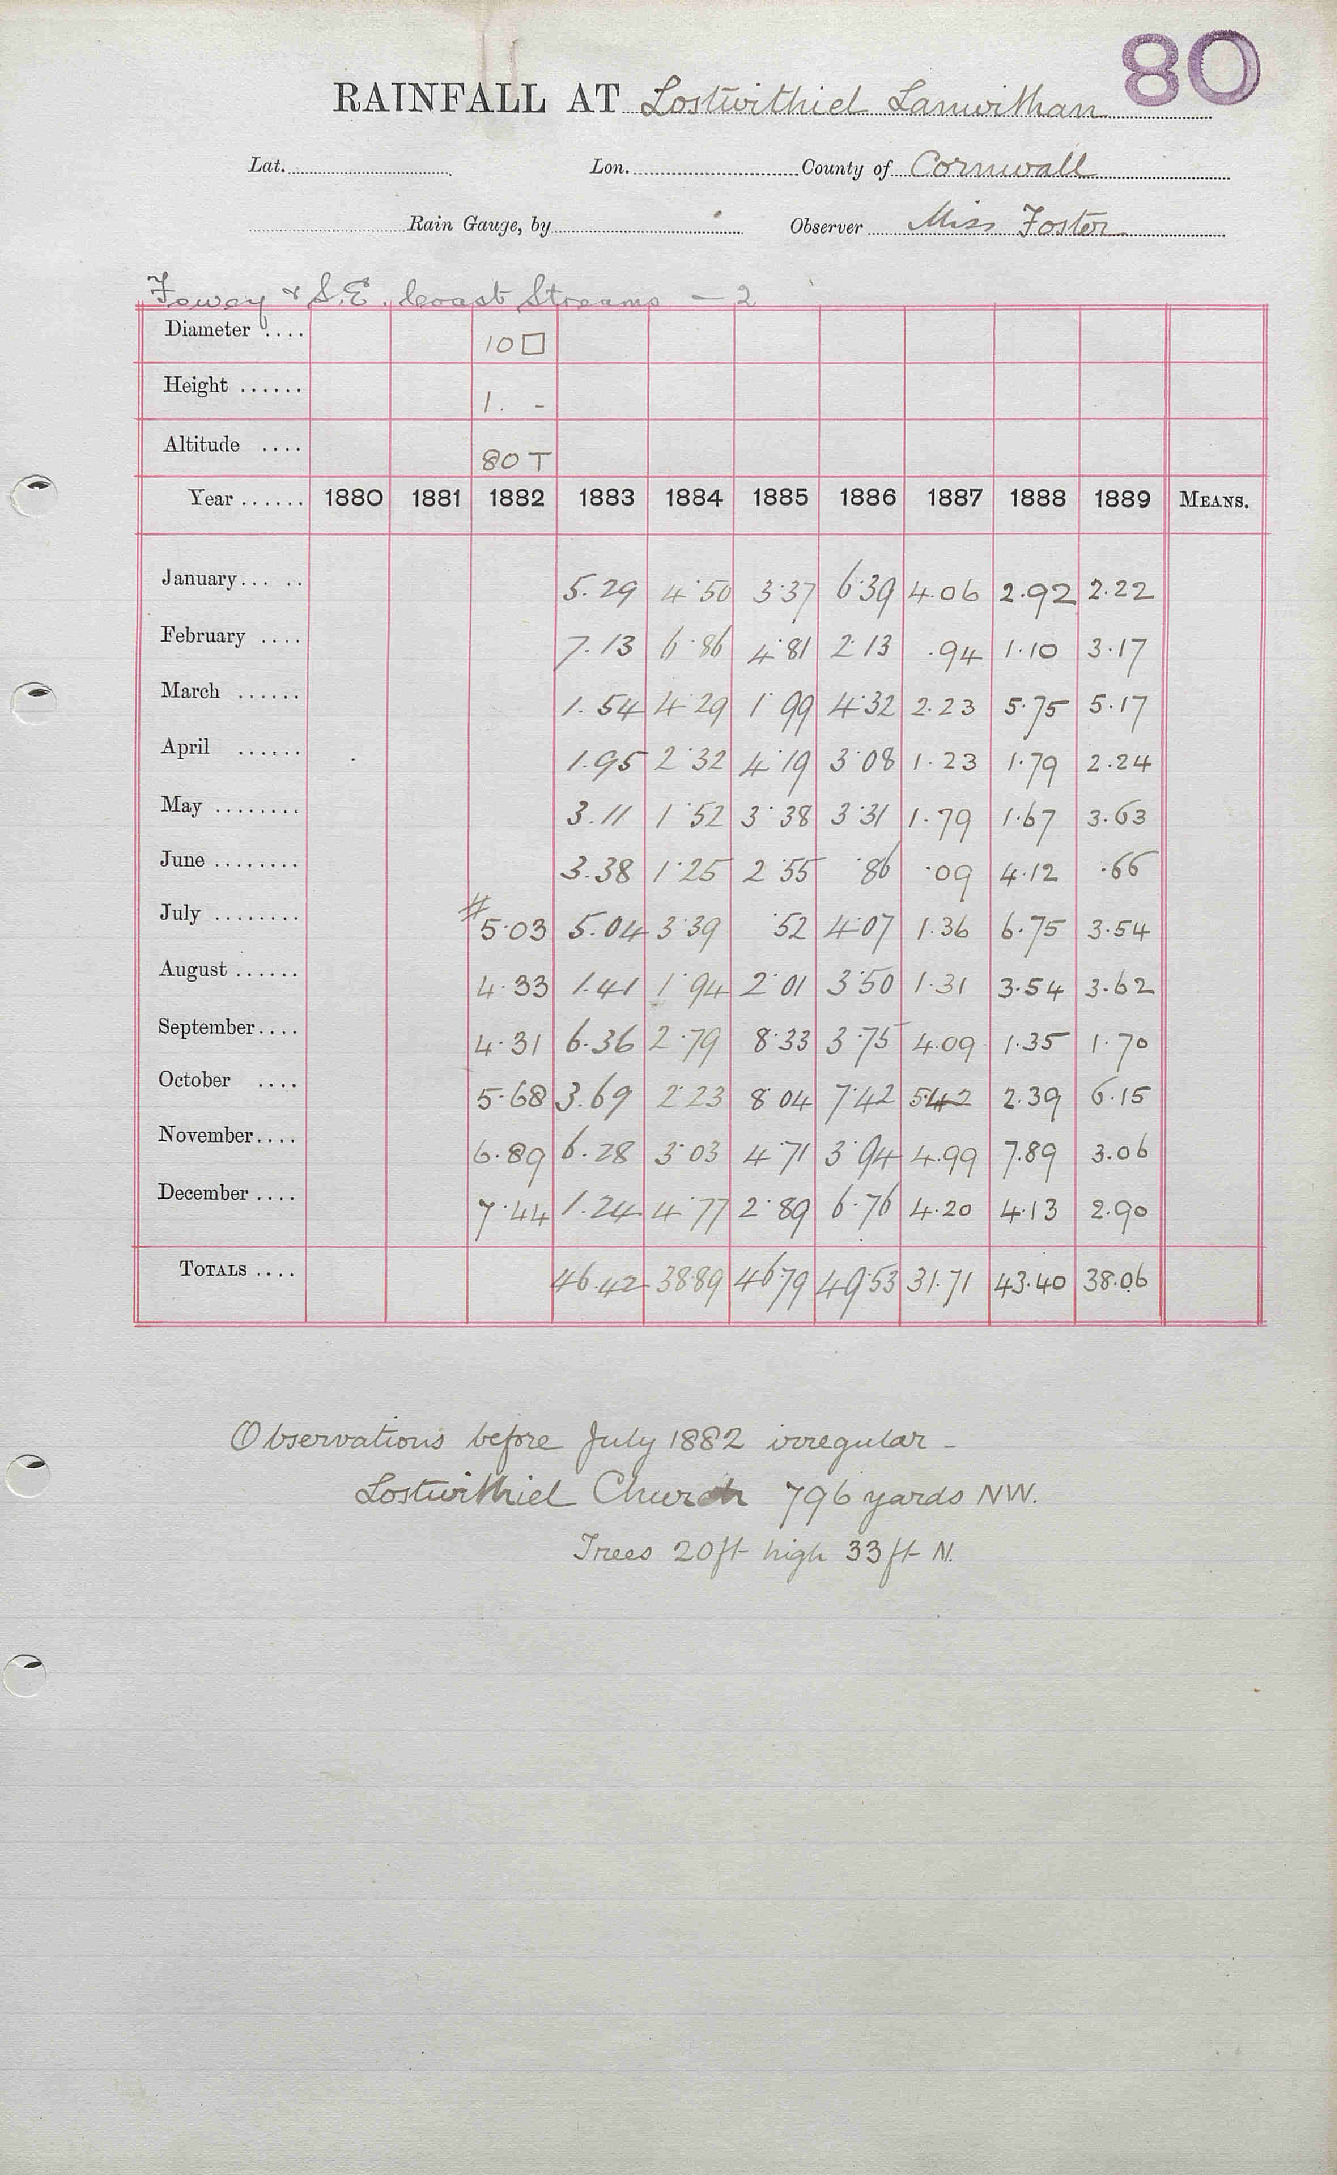 80
RAINFALL AT Lostwithiel Lanwithan
Lat. Lon. County of Cornwall
Rain Gauge, by Observer Miss Foster
Fowey & S.E. Coast Streams - 2
Diameter .... 10□
Height ...... 1. -
Altitude .... 80 T
Year ...... 1880 1881 1882 1883 1884 1885 1886 1887 1888 1889 MEANS.
January... .. 5.29 4.50 3.37 6.39 4.06 2.92 2.22
February .... 7.13 6.86 4.81 2.13 .94 1.10 3.17
March ...... 1.54 4.29 1.99 4.32 2.23 5.75 5.17
April ...... 1.95 2.32 4.19 3.08 1.23 1.79 2.24
May ........ 3.11 1.52 3.38 3.31 1.79 1.67 3.63
June ........ 3.38 1.25 2.55 .86 .09 4.12 .66
July ........ #5.03 5.04 3.39 .52 4.07 1.36 6.75 3.54
August ...... 4.33 1.41 1.94 2.01 3.50 1.31 3.54 3.62
September.... 4.31 6.36 2.79 8.33 3.75 4.09 1.35 1.70
October .... 5.68 3.69 2.23 8.04 7.42 5.42 2.39 6.15
November.... 6.89 6.28 3.03 4.71 3.94 4.99 7.89 3.06
December .... 7.44 1.24 4.77 2.89 6.76 4.20 4.13 2.90
TOTALS .... 46.42 38.89 46.79 49.53 31.71 43.40 38.06
Observations before July 1882 irregular -
Lostwithiel Church 796 yards NW.
Trees 20ft high 33ft N.